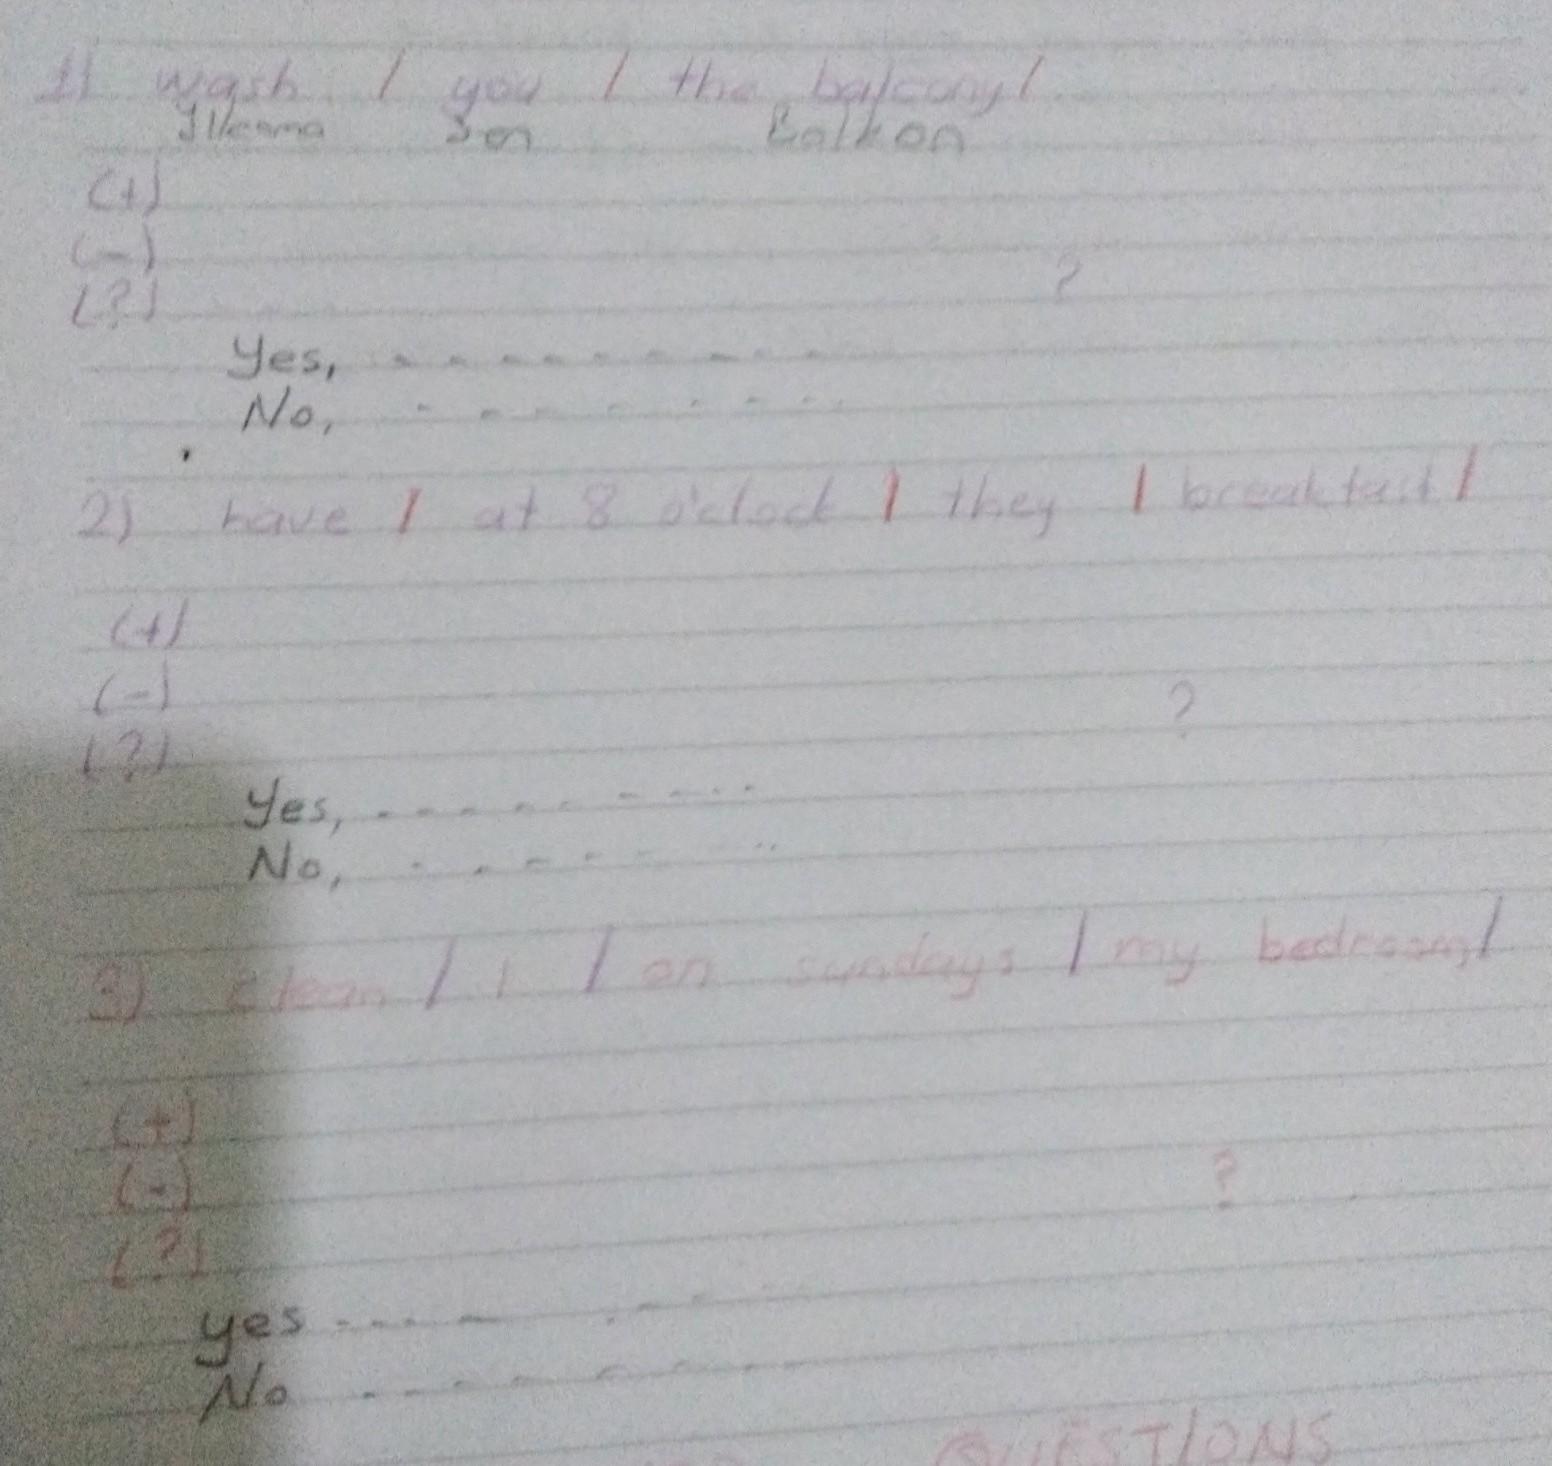 1) wash / you / the balcony /
Sen Balkon
(+)
(-)
(?) ?
Yes, - - - - - - - - -
No, - - - - - - - -
2) have / at 8 o'clock / they / breakfast /
(+)
(-)
(?) ?
Yes, - - - - - - - - -
No, - - - - - - -
3) clean / I / on sundays / my bedroom /
(+)
(-)
(?) ?
yes - - - - - - - -
No - - - - - -
QUESTIONS